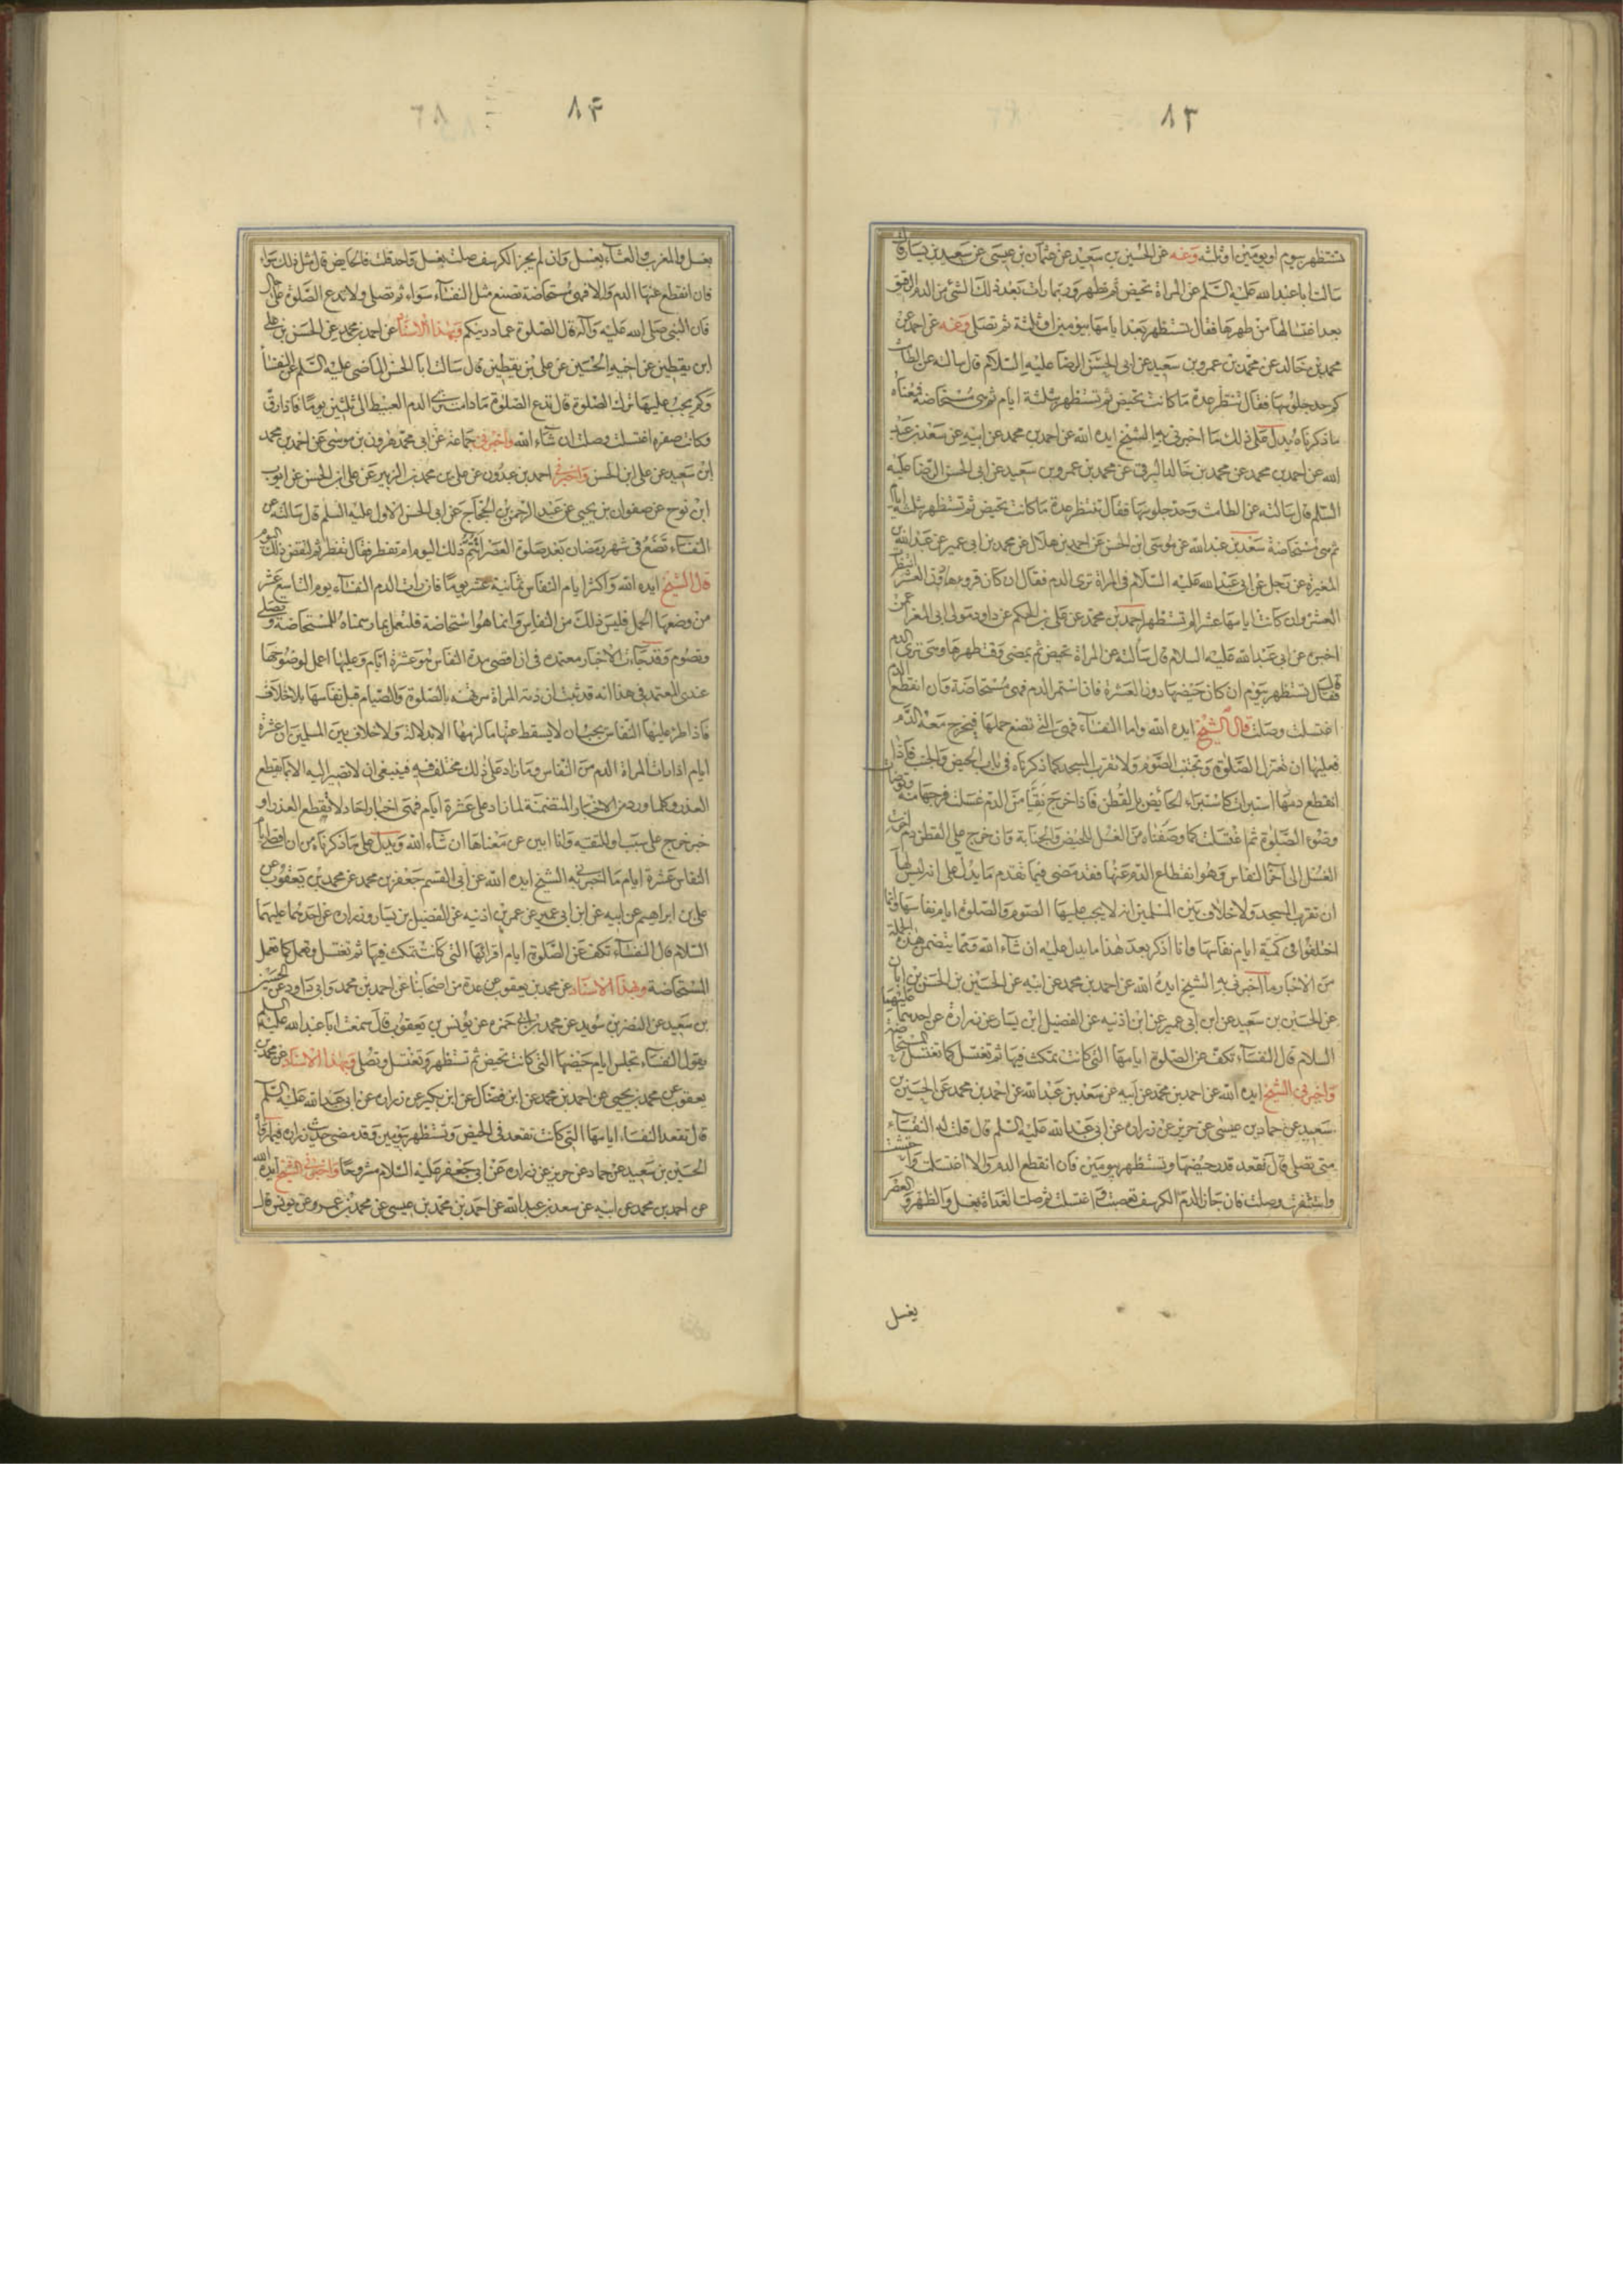 ٨٣
تستظهر بيوم او يومين او ثلثة وعنه عن الحسين بن سعيد عن عثمان بن عيسى عن سعيد بن يسار قال
سالت ابا عبد الله عليه السلم عن المراة تحيض ثم تطهر وربما رات بعد ذلك الشئ من الدم الرقيق
بعد اغتسالها من طهرها فقال تستظهر بعد ايامها بيومين او ثلثة ثم تصلى وعنه عن احمد بن
محمد بن خالد عن محمد بن عمرو بن سعيد عن ابى الحسن الرضا عليه السلام قال سالته عن الطامث
كم حد جلوسها فقال تنتظر عدة ما كانت تحيض ثم تستظهر بثلثة ايام ثم هى مستحاضة فمعناه
ما ذكرناه يدل على ذلك ما اخبرنى به الشيخ ايده الله عن احمد بن محمد عن ابيه عن سعد بن عبد
الله عن احمد بن محمد عن محمد بن خالد البرقى عن محمد بن عمرو بن سعيد عن ابى الحسن الرضا عليه
السلم قال سالته عن الطامث وحد جلوسها فقال تنتظر عدة ما كانت تحيض ثم تستظهر بثلثة ايام
ثم هى مستحاضة سعد بن عبد الله عن موسى ابن الحسن عن احمد بن هلال عن محمد بن ابى عمير عن عبد الله بن
المغيرة عن رجل عن ابى عبد الله عليه السلام فى المراة ترى الدم فقال ان كان قروءها دون العشرة انتظرت
العشرة وان كانت ايامها عشرا لم تستظهر احمد بن محمد عن على بن الحكم عن داود مولى ابى المغرا عمن
اخبره عن ابى عبد الله عليه السلام قال سالته عن المراة تحيض ثم يمضى وقت طهرها وهى ترى الدم
قال فقال تستظهر بيوم ان كان حيضها دون العشرة فان استمر الدم فهى مستحاضة وان انقطع الدم
اغتسلت وصلت قال الشيخ ايده الله واما النفساء فهى التى تضع حملها فيخرج معه الدم
فعليها ان تعتزل الصلوة وتجتنب الصوم ولا تقرب المسجد كما ذكرناه فى باب الحيض والجنب فاذا
انقطع دمها استبرات كاستبراء الحائض بالقطن فاذا خرج نقيا من الدم غسلت فرجها منه وتوضات
وضوء الصلوة ثم اغتسلت كما وصفناه من الغسل للحيض والجنابة وان خرج على القطن دم اخرت
الغسل الى اخر النفاس وهو انقطاع الدم عنها فقد مضى فيما تقدم ما يدل على انه ليس لها
ان تقرب المسجد ولا خلاف بين المسلمين انه لا يجب عليها الصوم والصلوة ايام نفاسها وانما
اختلفوا فى كمية ايام نفاسها وانا اذكر بعد هذا ما يدل عليه ان شاء الله ومما يتضمن هذه الجملة
من الاخبار ما اخبرنى به الشيخ ايده الله عن احمد بن محمد عن ابيه عن الحسين بن الحسن بن ابان
عن الحسين بن سعيد عن ابن ابى عمير عن ابن اذنيه عن الفضيل ابن يسار عن زرارة عن احدهما عليهما
السلام قال النفساء تكف عن الصلوة ايامها التى كانت تمكث فيها ثم تغتسل كما تغتسل المستحاضة
واخبرنى الشيخ ايده الله عن احمد بن محمد عن ابيه عن سعد بن عبد الله عن احمد بن محمد عن الحسين بن
سعيد عن حماد بن عيسى عن حريز عن زرارة عن ابى عبد الله عليه السلم قال قلت له النفساء
متى تصلى قال تقعد قدر حيضها وتستظهر بيومين فان انقطع الدم والا اغتسلت واحتشت
واستثفرت وصلت فان جاز الدم الكرسف تعصبت و اغتسلت ثم صلت الغداة بغسل والظهر و العصر
بغسل
٨۴
بغسل والمغرب والعشاء بغسل وان لم يجز الكرسف صلت بغسل واحد قلت فالحايض قال مثل ذلك سواء
فان انقطع عنها الدم والا فهى مستحاضة تصنع مثل النفساء سواء ثم تصلى ولا تدع الصلوة على حال
فان النبى صلى الله عليه وآله قال الصلوة عماد دينكم وبهذا الاسناد عن احمد بن محمد عن الحسن بن على
ابن يقطين عن اخيه الحسين عن على بن يقطين قال سالت ابا الحسن الماضى عليه السلم عن النفساء
وكم يجب عليها ترك الصلوة قال تدع الصلوة ما دامت ترى الدم العبيط الى ثلثين يوما فاذا رق
وكانت صفره اغتسلت وصلت ان شاء الله واخبرنى جماعة عن ابى محمد هرون بن موسى عن احمد بن محمد
ابن سعيد عن على ابن الحسن واخبرنى احمد بن عبدون عن على بن محمد بن الزبير عن على ابن الحسن عن ايوب
ابن نوح عن صفوان بن يحيى عن عبد الرحمن بن الحجاج عن ابى الحسن الاول عليه السلم قال سالته عن
النفساء تضع فى شهر رمضان بعد صلوة العصر اتتم ذلك اليوم ام تفطر فقال تفطر ثم لتقض ذلك اليوم
قال الشيخ ايده الله واكثر ايام النفاس ثمانية عشر يوما فان رات الدم النفساء يوم التاسع عشر
من وضعها الحمل فليس ذلك من النفاس وانما هو استحاضة فلتعمل بما رسمناه للمستحاضة وتصلى
وتصوم وقد جاءت الاخبار معتمدة فى ان اقصى مدة النفاس هو عشرة ايام وعليها اعمل لوضوحها
عندى المعتمد فى هذا انه قد ثبت ان ذمة المراة مرتهنة بالصلوة والصيام قبل نفاسها بلا خلاف
فاذا طرء عليها النفاس يجب ان لا يسقط عنها ما لزمها الا بدلالة ولا خلاف بين المسلمين ان عشرة
ايام اذا رات المراة الدم من النفاس وما زاد على ذلك مختلف فيه فينبغى ان لا تصير اليه الا بما يقطع
العذر وكلما ورد من الاخبار المتضمنة لما زاد على عشرة ايام فهى اخبار احاد لا تقطع العذر او
خبر خرج على سبب او للتقية وانا ابين عن معناها ان شاء الله ويدل على ما ذكرناه من ان اقصى ايام
النفاس عشرة ايام ما اخبرنى به الشيخ ايده الله عن ابى القسم جعفر بن محمد عن محمد بن يعقوب عن
على بن ابراهيم عن ابيه عن ابن ابى عمير عن عمر بن اذنيه عن الفضيل بن يسار وزرارة عن احدهما عليهما
السلام قال النفساء تكف عن الصلوة ايام اقرائها التى كانت تمكث فيها ثم تغتسل وتعمل كما تعمل
المستحاضة وبهذا الاسناد عن محمد بن يعقوب عن عدة من اصحابنا عن احمد بن محمد وابى داود عن الحسين
بن سعيد عن النضر بن سويد عن محمد بن ابى حمزه عن يونس بن يعقوب قال سمعت ابا عبد الله عليه السلم
يقول النفساء تجلس ايام حيضها التى كانت تحيض ثم تستظهر وتغتسل وتصلى وبهذا الاسناد عن محمد بن
يعقوب عن محمد بن يحيى عن احمد بن محمد عن ابن فضال عن ابن بكير عن زرارة عن ابى عبد الله عليه السلم
قال تقعد النفساء ايامها التى كانت تقعد فى الحيض وتستظهر بيومين وقد مضى حديث زرارة فيما رواه
الحسين بن سعيد عن حماد عن حريز عن زرارة عن ابى جعفر عليه السلام مشروحا واخبرنى الشيخ ايده الله
عن احمد بن محمد عن ابيه عن سعد بن عبد الله عن احمد بن محمد بن عيسى عن محمد بن عمرو عن يونس قال